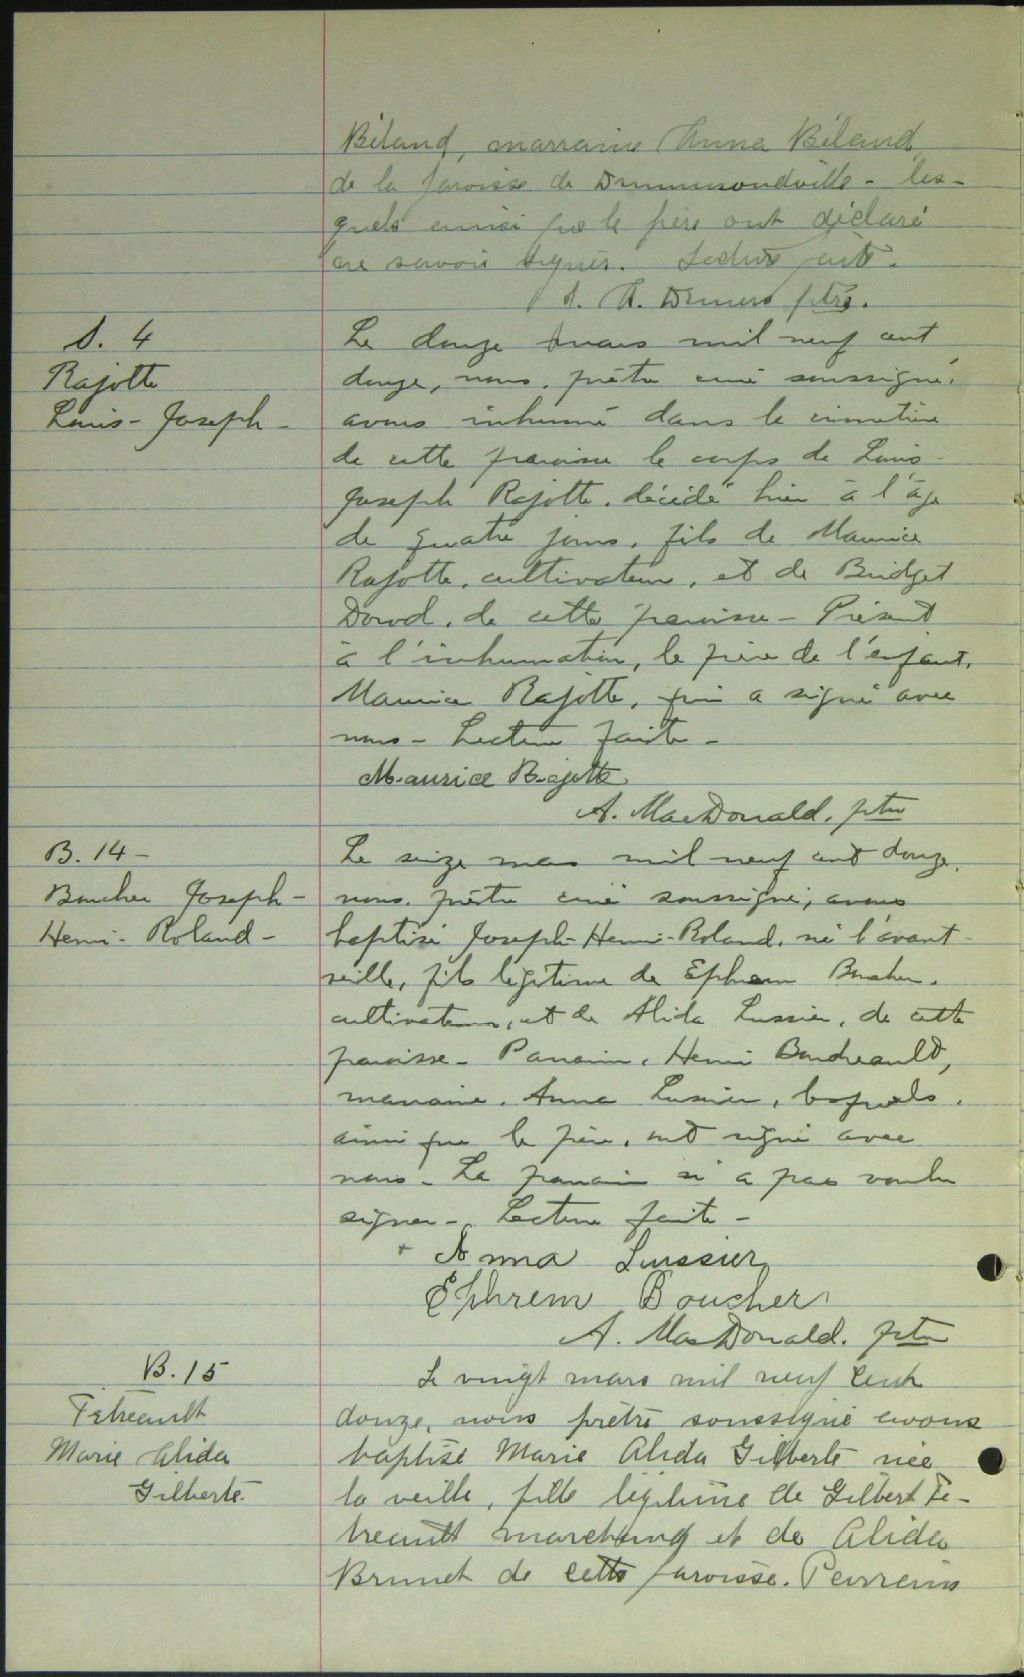 Béland, marraine Anna Béland
de la paroisse de Drummondville - les-
quels ainsi que le père ont déclaré
ne savoir signer. Lecture faite.
A. Demers ptre.
S. 4
Rajotte
Louis-Joseph -
Le douze mars mil neuf cent
douze, nous, prêtre curé soussigné,
avons inhumé dans le cimetière
de cette paroisse le corps de Louis-
Joseph Rajotte, décédé hier à l'âge
de quatre jours, fils de Maurice
Rajotte, cultivateur, et de Bridget
Dowd, de cette paroisse - Présent
à l'inhumation, le père de l'enfant,
Maurice Rajotte, qui a signé avec
nous - Lecture faite -
Maurice Rajotte
A. MacDonald, ptre
B. 14 -
Boucher Joseph -
Henri - Roland -
Le seize mars mil neuf cent douze,
nous, prêtre curé soussigné, avons
baptisé Joseph-Henri-Roland, né l'avant-
veille, fils légitime de Ephrem Boucher,
cultivateur, et de Alida Lussier, de cette
paroisse - Parrain, Henri Boudreault,
marraine, Anna Lussier, lesquels,
ainsi que le père, ont signé avec
nous - Le parrain n'a pas voulu
signer - Lecture faite -
+ Anna Lussier
Ephrem Boucher
A. MacDonald, ptre
B. 15
Fétreault
Marie Alida
Gilberte
Le vingt mars mil neuf cent
douze, nous prêtre soussigné avons
baptisé Marie Alida Gilberte née
la veille, fille légitime de Gilbert Fé-
treault marchand et de Alida
Brunet de cette paroisse. Parrain